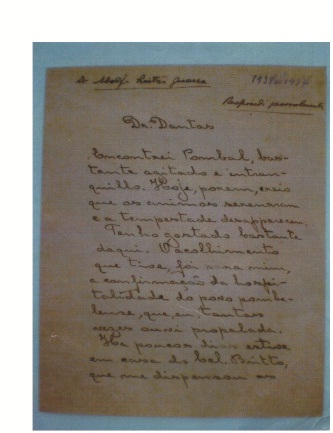 Dr. Dantas
Encontrei Pombal, bas-
tante agitado e intran-
quillo. Hoje, porem, creio
que os animos serenaram
e a tempestade desappareceu.
Tenho gostado bastante
daqui. O acolhimento
que tive, foi para mim,
a confirmação da hospi-
talidade do povo pomba-
lense, que, en tantas
vezes ouvi propalada.
Ha poucos dias estive
em casa do Cel. Britto,
que me dispensou os